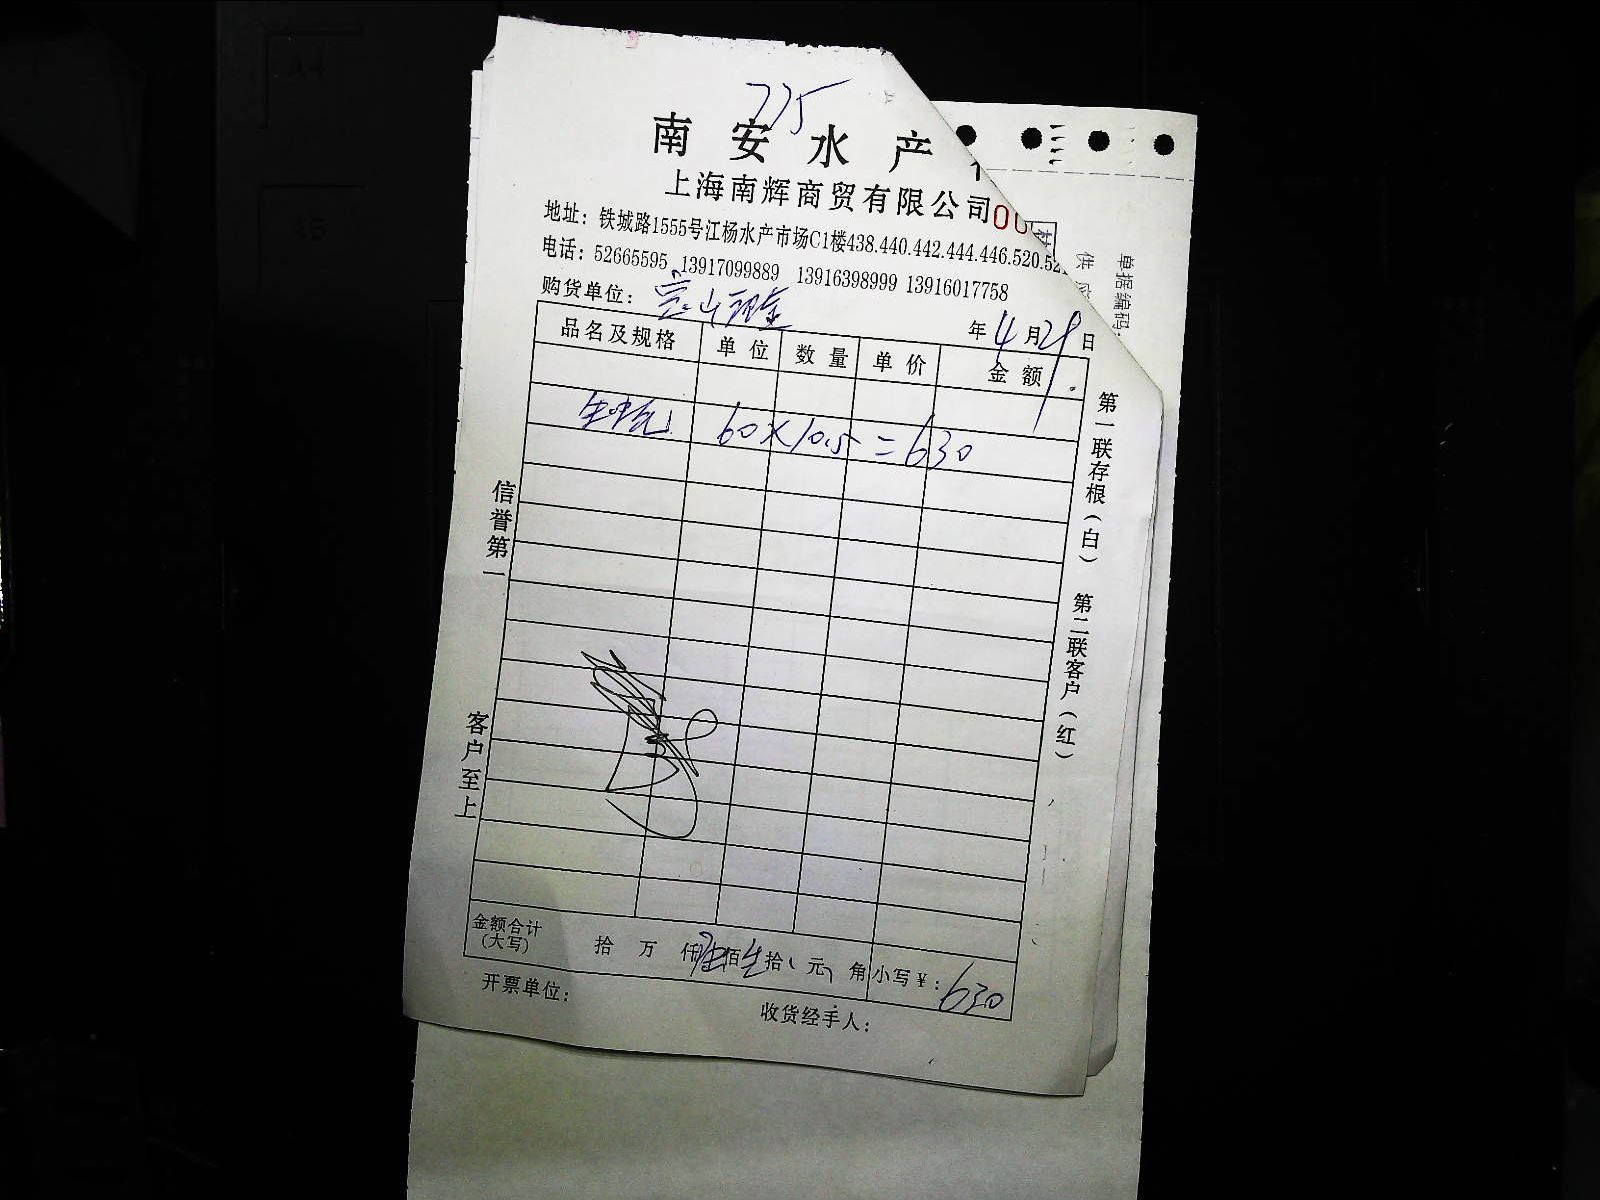 775
南安水产
上海南辉商贸有限公司
地址：铁城路1555号江杨水产市场C1楼438.440.442.444.446.520.52
电话：52665595 13917099889 13916398999 13916017758
购货单位：宝山
年4月29日
品名及规格 单位 数量 单价 金额
60×10.5=630
金额合计
(大写)
拾 万 仟陆佰 拾 元 角 小写￥：630
开票单位：
收货经手人：
信誉第一
客户至上
第一联存根（白）
第二联客户（红）
供应
单据编码：